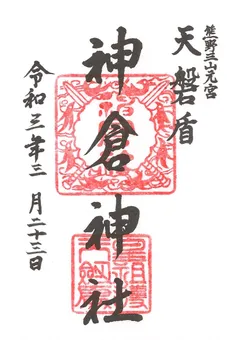 熊野三山元宮
天磐盾
神倉神社
令和三年三月二十三日